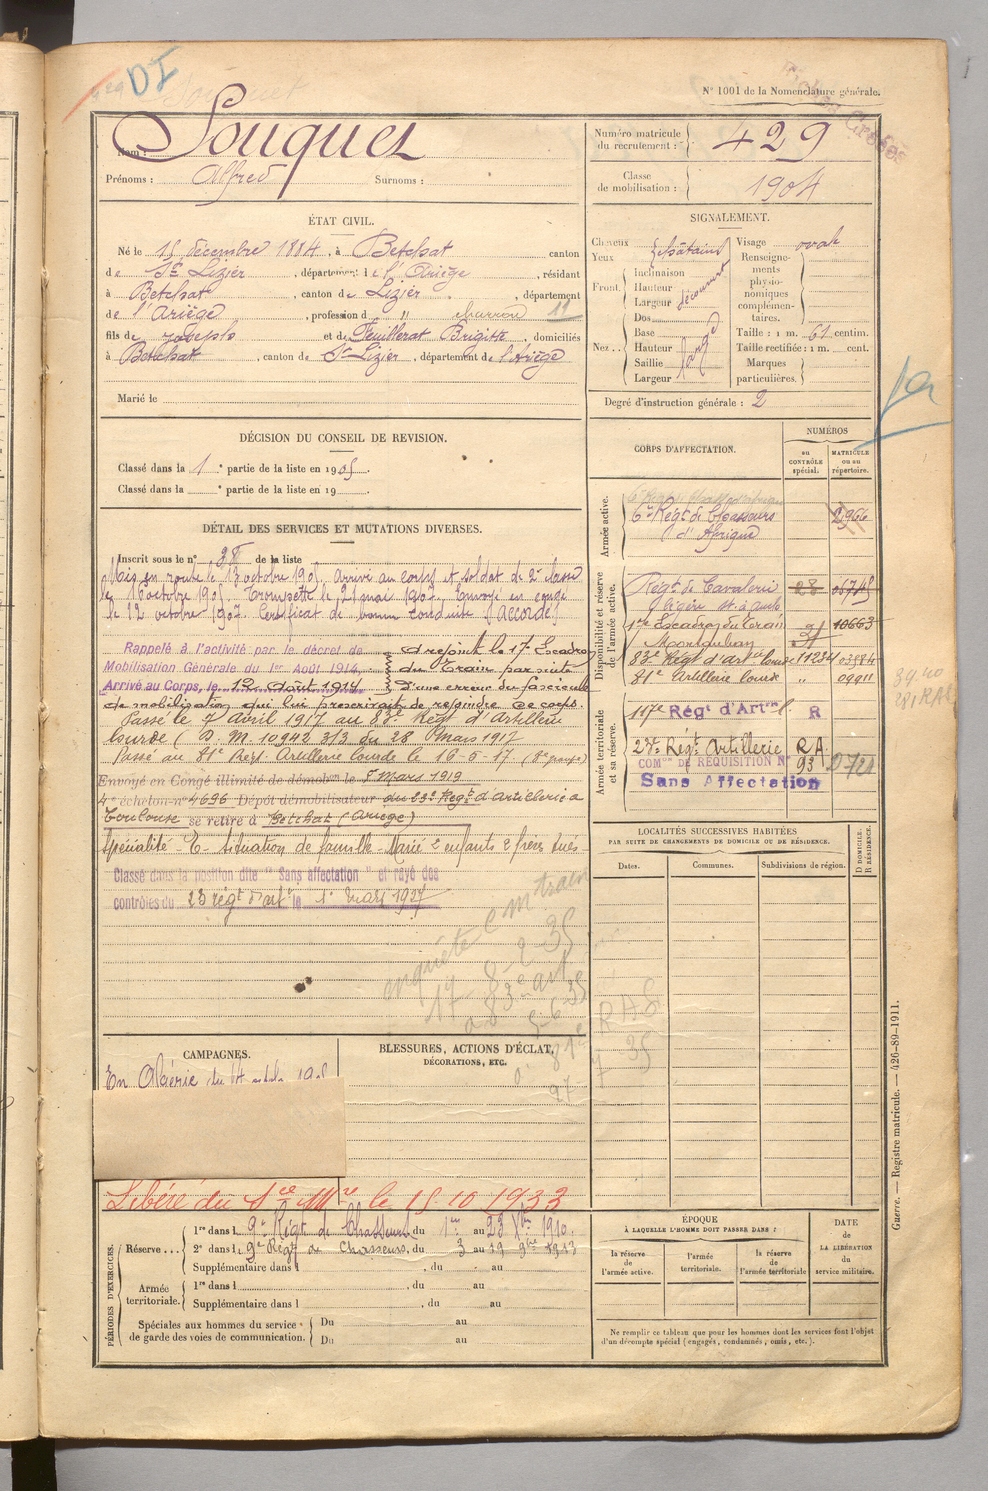 DI
N° 1001 de la Nomenclature générale.
Nom : Souquet
Prénoms : Alfred Surnoms :
Numéro matricule du recrutement : 429
Classe de mobilisation : 1904
ÉTAT CIVIL.
Né le 15 décembre 1884, à Betchat canton
de St Lizier, département de l'Ariège, résidant
à Betchat, canton de St Lizier, département
de l'Ariège, profession d " charron 11
fils de Joseph et de Feuillerat Brigitte, domiciliés
à Betchat, canton de St Lizier, département de l'Ariège
Marié le
SIGNALEMENT.
Cheveux châtains
Yeux
Front. Inclinaison
Hauteur découvert
Largeur
Nez.. Dos
Base
Hauteur large
Saillie
Largeur
Visage ovale
Renseignements physionomiques complémentaires.
Taille : 1 m. 61 centim.
Taille rectifiée : 1 m. cent.
Marques particulières.
Degré d'instruction générale : 2
DÉCISION DU CONSEIL DE REVISION.
Classé dans la 1e partie de la liste en 1905.
Classé dans la e partie de la liste en 19
DÉTAIL DES SERVICES ET MUTATIONS DIVERSES.
Inscrit sous le n° de la liste
Mis en route le 13 octobre 1905, arrivé au corps et soldat de 2e classe
le 16 octobre 1905. Trompette le 21 mai 1907. Envoyé en congé
le 12 octobre 1907. Certificat de bonne conduite "accordé"
Rappelé à l'activité par le décret de
Mobilisation Générale du 1er Août 1914
Arrivé au Corps, le 12 Août 1914
a rejoint le 17e Escadron
du Train par suite
d'une erreur du fascicule
de mobilisation qui lui prescrivait de rejoindre ce corps.
Passé le 7 Avril 1917 au 83e Régt d'Artillerie
lourde (D. M. 10942 3/3 du 28 Mars 1917
Passé au 81e Régt Artillerie lourde le 16-5-17 (8e groupe)
Envoyé en Congé illimité de démobon le 8 Mars 1919
4e échelon n° 4696 Dépôt démobilisateur du 23e Régt d'Artillerie à
Toulouse se retire à Betchat (Ariège)
Spécialité - E - Situation de famille - Marié 2 enfants 2 frères tués
Classé dans la position dite "Sans affectation" et rayé des
contrôles du 23 régt d'art le 1er mars 1927
enquête C m train
17 8-2-35
a 83e art
5-6-35
CORPS D'AFFECTATION.
NUMÉROS
au CONTRÔLE spécial.
MATRICULE ou au répertoire.
Armée active.
6e Régt de Chasseurs d'Afrique 2966
Disponibilité et réserve de l'armée active.
Régt de Cavalerie légère 28
17e Escadron du Train Montauban 10663
83e Régt d'Artie lourde 11234
81e Artillerie lourde " 09911
Armée territoriale et sa réserve.
117e Régt d'Artie R
23e Régt Artillerie RA
COMon DE REQUISITION N° 93
Sans Affectation
39.40
281 RAL
LOCALITÉS SUCCESSIVES HABITÉES
PAR SUITE DE CHANGEMENTS DE DOMICILE OU DE RÉSIDENCE.
Dates. Communes. Subdivisions de région.
D DOMICILE. R RÉSIDENCE.
CAMPAGNES.
En Algérie du 14
BLESSURES, ACTIONS D'ÉCLAT, DÉCORATIONS, ETC.
Libéré du Sce Mre le 15.10.1933
PÉRIODES D'EXERCICES.
Réserve... 1re dans le 9e Régt de Chasseurs, du 1er au 23 Xbre 1910.
2e dans le 9e Régt de Chasseurs, du 3 au 19 9bre 1913
Supplémentaire dans l , du au
Armée territoriale. 1re dans l , du au
Supplémentaire dans l , du au
Spéciales aux hommes du service de garde des voies de communication. Du au
Du au
ÉPOQUE
À LAQUELLE L'HOMME DOIT PASSER DANS :
la réserve de l'armée active.
l'armée territoriale.
la réserve de l'armée territoriale
DATE de LA LIBÉRATION du service militaire.
Ne remplir ce tableau que pour les hommes dont les services font l'objet d'un décompte spécial (engagés, condamnés, omis, etc.).
Guerre. — Registre matricule. — 426-89-1911.